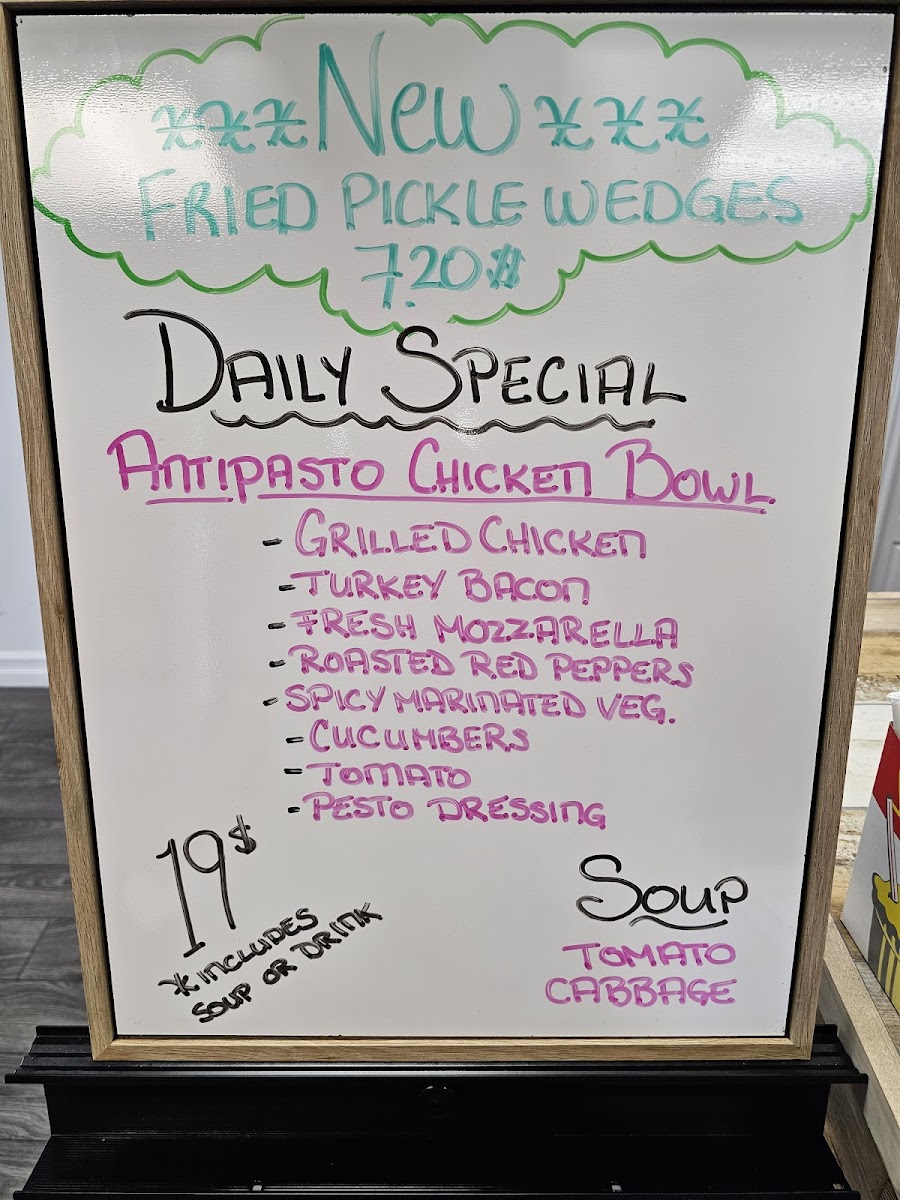 ***New***
FRIED PICKLE WEDGES
7.20$
DAILY SPECIAL
ANTIPASTO CHICKEN BOWL
- GRILLED CHICKEN
- TURKEY BACON
- FRESH MOZZARELLA
- ROASTED RED PEPPERS
- SPICY MARINATED VEG.
- CUCUMBERS
- TOMATO
- PESTO DRESSING
19$
*INCLUDES
SOUP OR DRINK
SOUP
TOMATO
CABBAGE